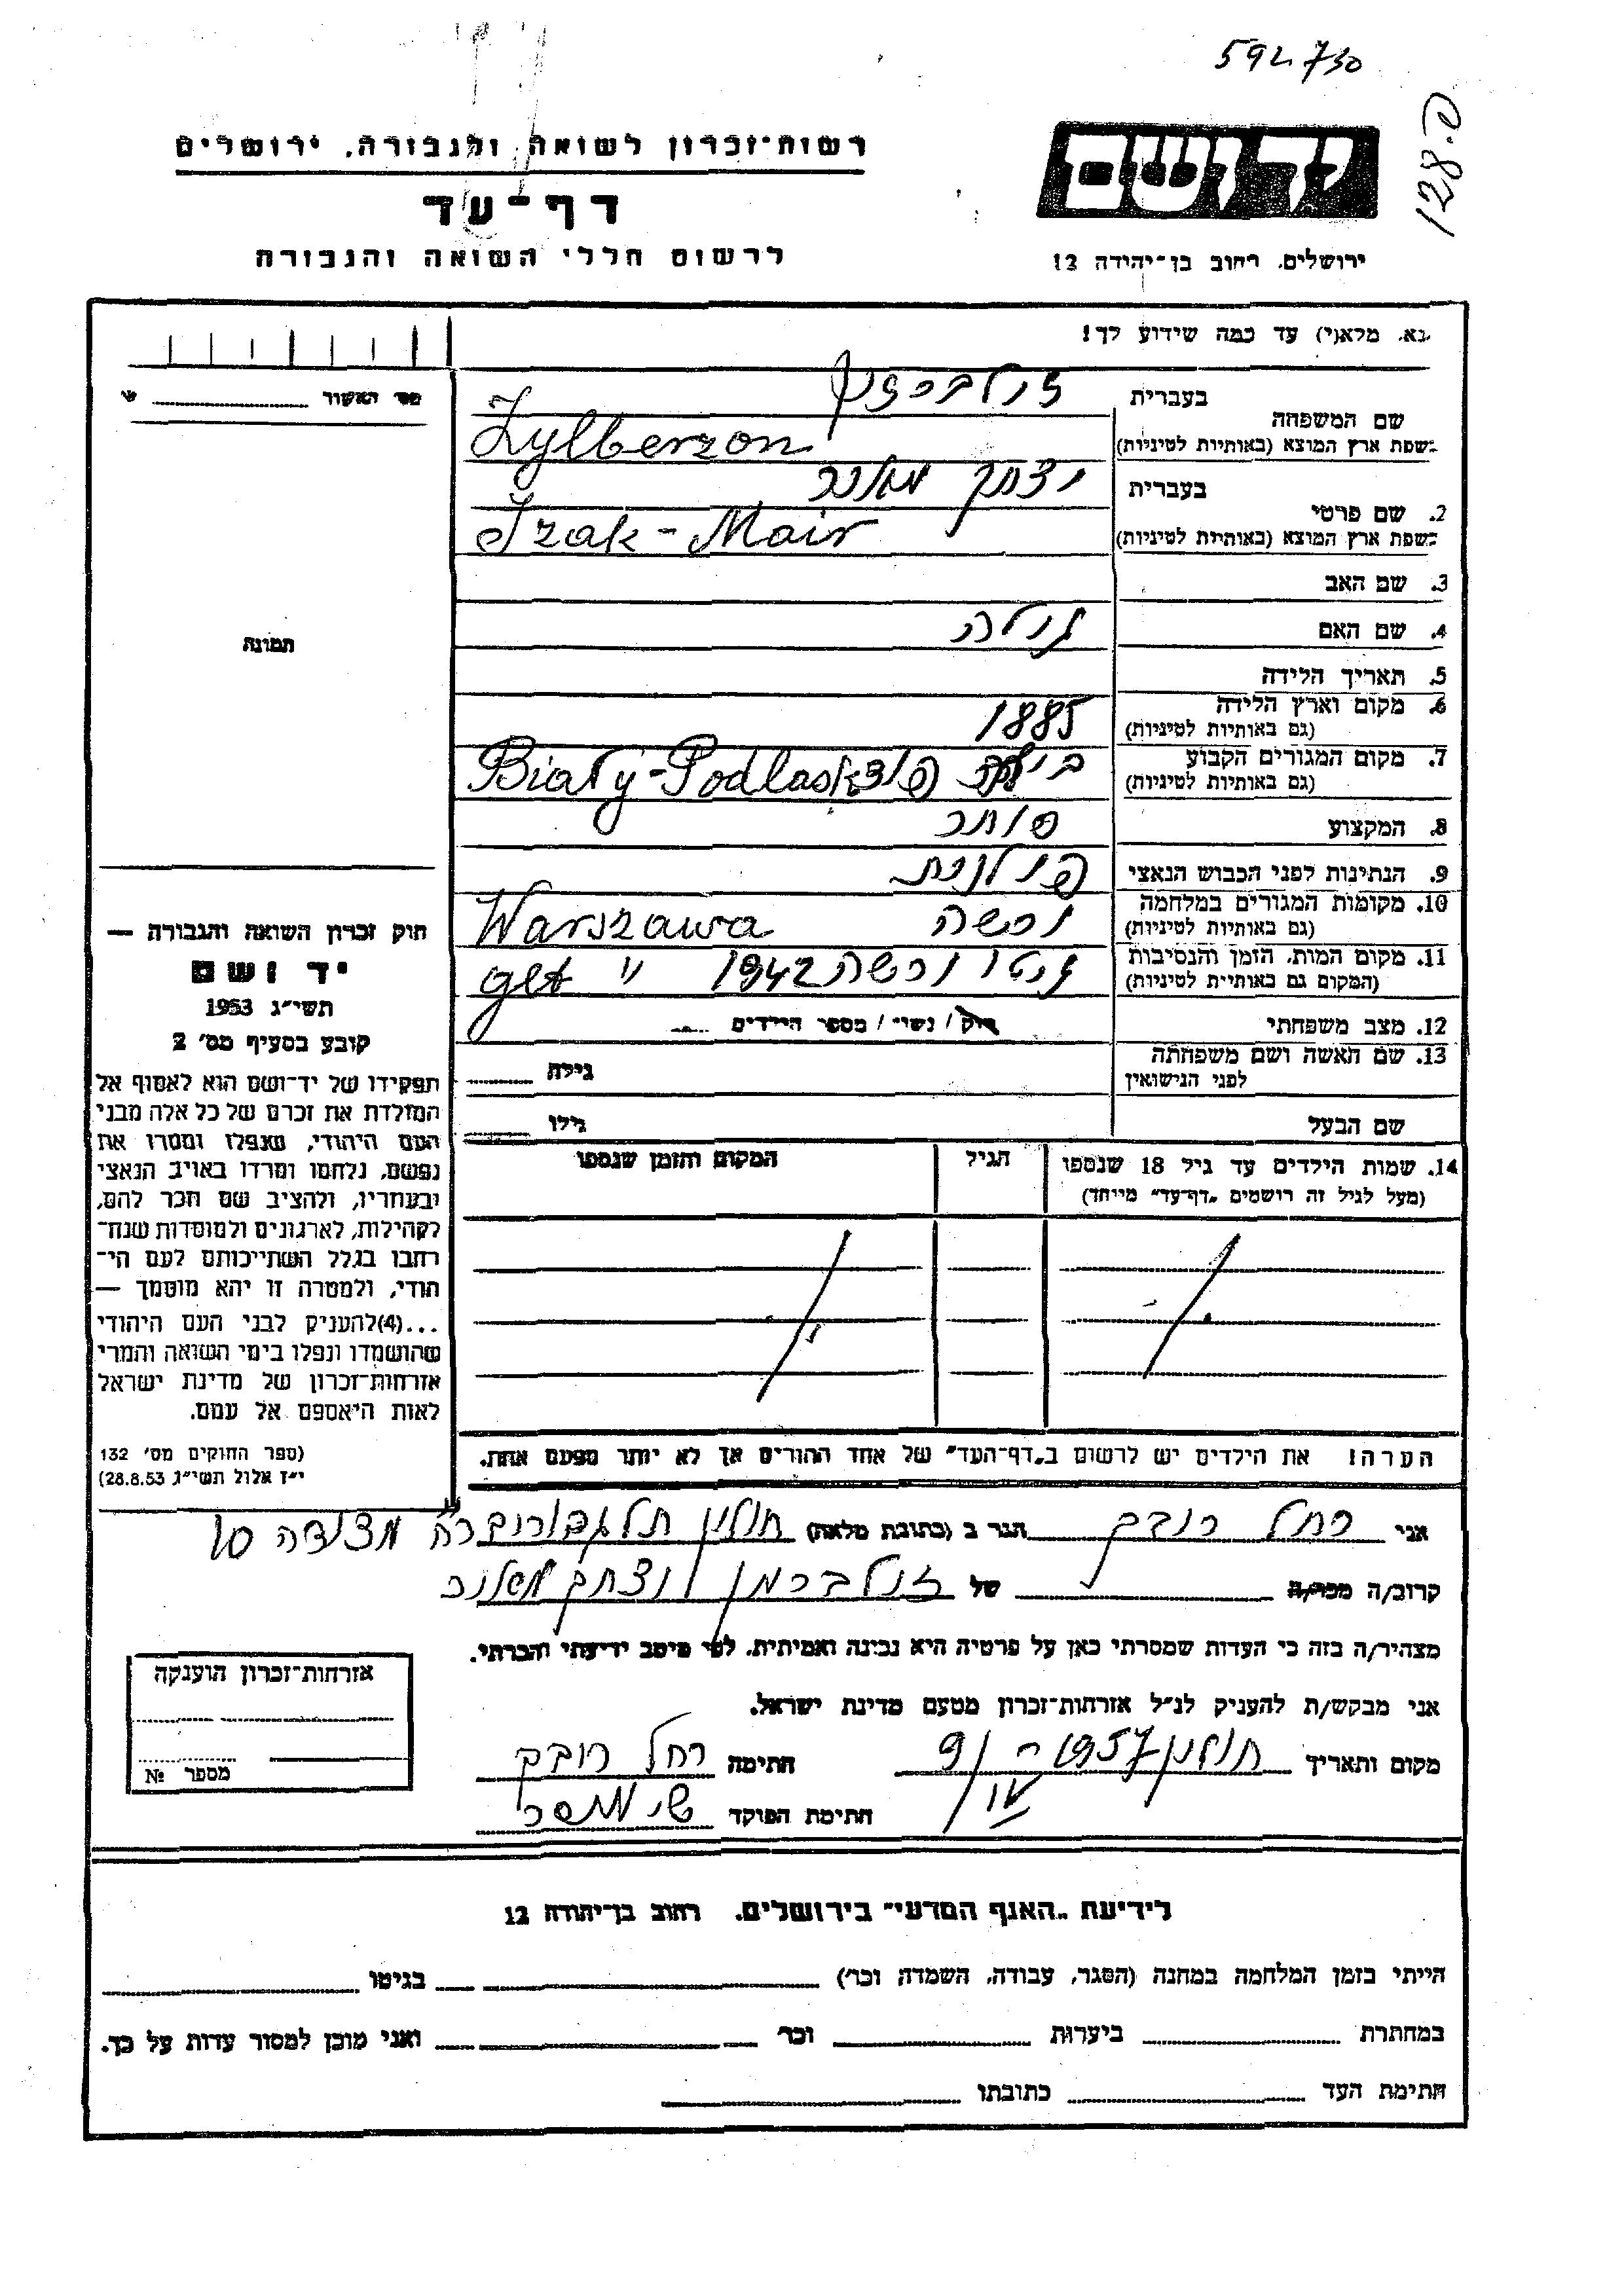 592730
128.פ
רשות־זכרון לשואה ולגבורה, ירושלים
דף־עד
לרשום חללי השואה והגבורה
יד ושם
ירושלים, רחוב בן־יהודה 12
נא, מלא(י) עד כמה שידוע לך!
מס' האשור
שם המשפחה
בעברית זילברזון
בשפת ארץ המוצא (באותיות לטיניות) Zylberzon
2. שם פרטי
בעברית יצחק מאיר
בשפת ארץ המוצא (באותיות לטיניות) Izak - Mair
3. שם האב
4. שם האם
5. תאריך הלידה
6. מקום וארץ הלידה (גם באותיות לטיניות) 1885
7. מקום המגורים הקבוע (גם באותיות לטיניות) Biały-Podlask
8. המקצוע סוחר
9. הנתינות לפני הכבוש הנאצי פולנית
10. מקומות המגורים במלחמה (גם באותיות לטיניות) ורשה Warszawa
11. מקום המות, הזמן והנסיבות (המקום גם באותיות לטיניות) גטו ורשה 1942 " get
12. מצב משפחתי רוק / נשוי / מספר הילדים
13. שם האשה ושם משפחתה לפני הנישואין גילה
שם הבעל גילו
14. שמות הילדים עד גיל 18 שנספו (מעל לגיל זה רושמים "דף־עד" מיוחד) הגיל המקום והזמן שנספו
הערה! את הילדים יש לרשום ב"דף־העד" של אחד ההורים אך לא יותר מפעם אחת.
תמונה
חוק זכרון השואה והגבורה —
יד ושם
תשי"ג 1953
קובע בסעיף מס' 2
תפקידו של יד־ושם הוא לאסוף אל
המולדת את זכרם של כל אלה מבני
העם היהודי, שנפלו ומסרו את
נפשם, נלחמו ומרדו באויב הנאצי
ובעוזריו, ולהציב שם וזכר להם,
לקהילות, לארגונים ולמוסדות שנח־
רבו בגלל השתייכותם לעם הי־
הודי, ולמטרה זו יהא מוסמך —
...(4) להעניק לבני העם היהודי
שהושמדו ונפלו בימי השואה והמרי
אזרחות־זכרון של מדינת ישראל
לאות היאספם אל עמם.
(ספר החוקים מס' 132
י"ז אלול תשי"ג, 28.8.53)
אני רחל רובק הגר ב (כתובת מלאה) חולון תל גבורים רח מצודה 10
קרוב/ה מכר/ה של זילברמן יצחק מאיר
מצהיר/ה בזה כי העדות שמסרתי כאן על פרטיה היא נכונה ואמיתית, לפי מיטב ידיעתי והכרתי.
אני מבקש/ת להעניק לנ"ל אזרחות־זכרון מטעם מדינת ישראל.
מקום ותאריך חולון 9/IV 1957 חתימה רחל רובק
חתימת הפוקד
אזרחות־זכרון הוענקה
מספר №
לידיעת "האגף המדעי" בירושלים, רחוב בן־יהודה 12
הייתי בזמן המלחמה במחנה (הסגר, עבודה, השמדה וכו') בגיטו
במחתרת ביערות וכו' ואני מוכן למסור עדות על כך.
חתימת העד כתובתו